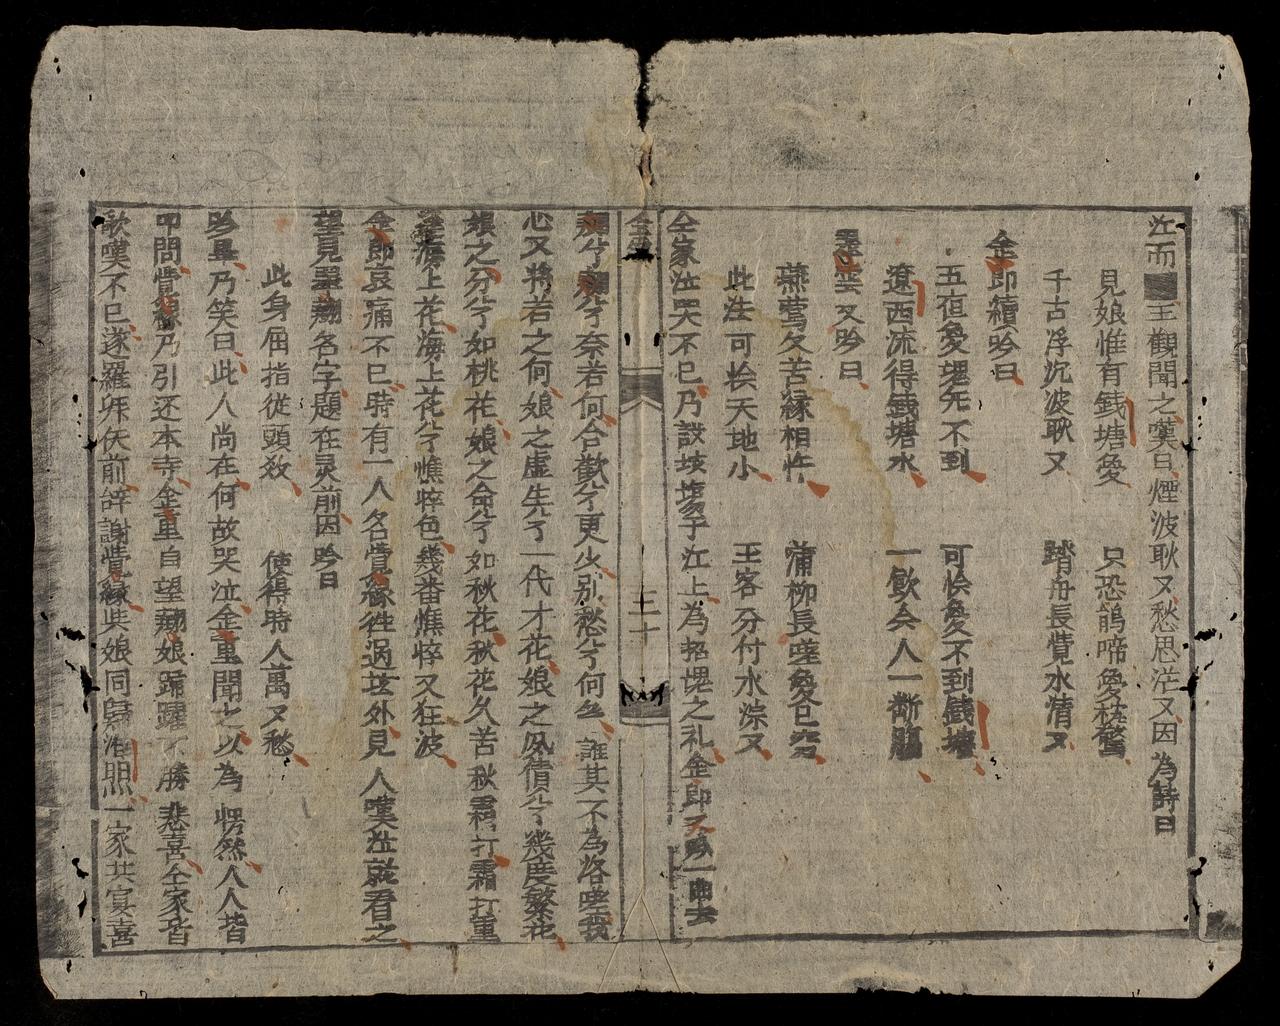 泣而王觀聞之嘆曰煙波耿又愁思茫又因為詩曰
見娘惟有錢塘夐 只恐鵑啼夐枕驚
千古浮沉波耿又 踏舟長覺水情又
金郎續吟曰
五夜夐魂死不到 可恠夐不到錢塘
遼西流得錢塘水 一飲令人一斷膓
翠雲又吟曰
燕鶯久苦緣相忤 蒲柳長嗟夐已
此法可恠天地小 王客分付水淙又
仝家泣哭不已乃設坡塲于江上為招魂之礼金郎又吟一曲云
三十
翹兮翹兮奈若何合歡兮更少別愁兮何 誰其不為洛嗟我
心又將若之何娘之虛生兮一代才花娘之風情兮幾度繁花
娘之分兮如桃花娘之命兮如秋花秋花久苦秋霜打霜打重
海上花海上花兮憔悴色幾番憔悴又狂波
金郎哀痛不已時有一人名覺緣徃過坡外見人嘆泣就看之
望見翠翹名字題在灵前因吟曰
此身屈指從頭数 使得時人萬又愁
吟畢乃笑曰此人尚在何故哭泣金重聞之以為愕然人人皆
叩問覺緣乃引还本寺金重自望翹娘踊躍不勝悲喜仝家皆
歌嘆不已遂羅拜佛前辞謝覺緣與娘同歸 照一家共宴喜